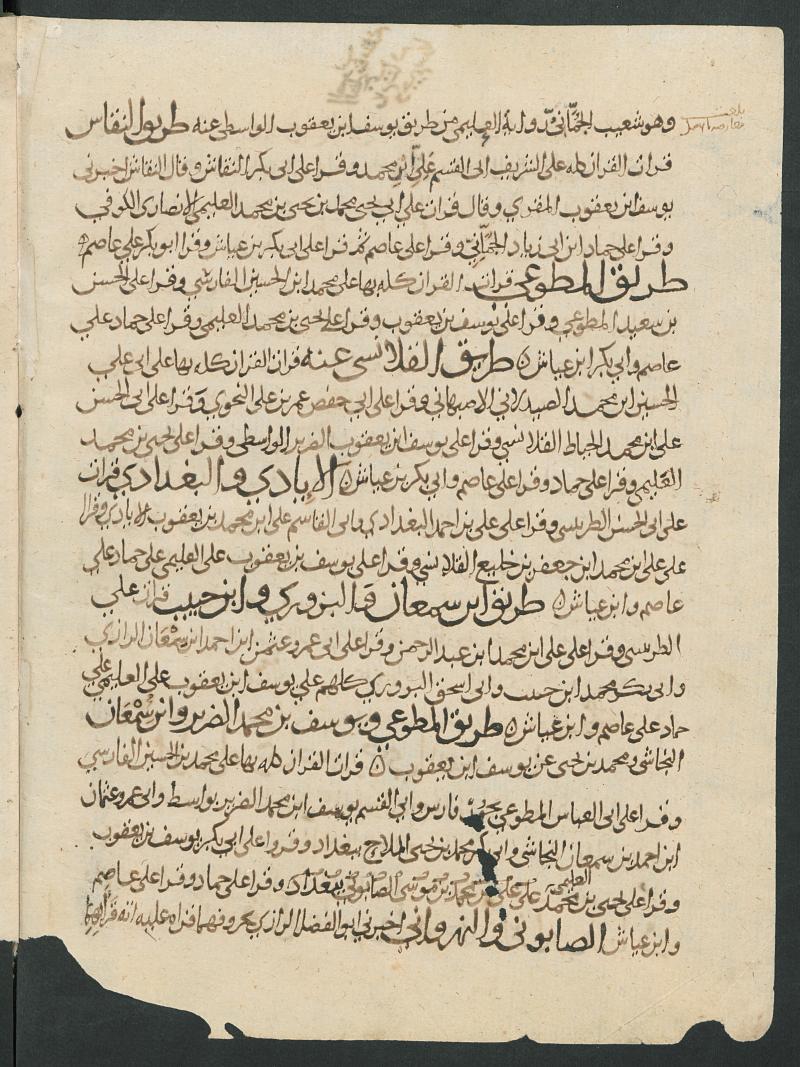 وهو شعيب الحِمّاني رواية العليمي من طريق يوسف ابن يعقوب الواسطي عنه طريق النقاش
قرات القران كله على الشريف ابي القسم علي ابن محمد وقرا على ابي بكر النقاش وقال النقاش اخبرني
يوسف ابن يعقوب المقري وقال قرات على ابي يحيى محمد بن يحيى بن محمد العليمي الانصاري الكوفي
وقرا على حماد ابن ابي زياد الحِمّاني وقرا على عاصم ثم قرا على ابي بكر بن عياش وقرا ابو بكر على عاصم
طريق المطوعي قرات القران كله بها على محمد ابن الحسين الفارسي وقرا على الحسن
بن سعيد المطوعي وقرا على يوسف بن يعقوب وقرا على يحيى بن محمد العليمي وقرا على حماد على
عاصم وابي بكر ابن عياش طريق القلانسي عنه قرات القران كله بها على ابي علي
الحسين ابن محمد الصيدلاني الاصبهاني وقرا على ابي حفص عمر بن علي النحوي وقرا على ابي الحسن
علي ابن محمد الخياط القلانسي وقرا على يوسف ابن يعقوب الضرير الواسطي وقرا على يحيى بن محمد
العليمي وقرا على حماد وقرا على عاصم وابي بكر بن عياش الابادي والبغدادي قرات
على ابي الحسن الطريسي وقرا على علي بن احمد البغدادي وابي القاسم علي ابن محمد بن يعقوب الابادي وقرا
على علي ابن محمد ابن جعفر بن خليع القلانسي وقرا على يوسف بن يعقوب على العليمي على حماد على
عاصم وابن عياش طريق ابن سمعان والبزوري وابن حبيب قرات على
الطريسي وقرا على علي ابن محمد ابن عبد الرحمن وقرا على ابي عمرو عثمن ابن احمد ابن سمعان الرازي
وابي بكر محمد ابن حبيب وابي اسحق البزوري كلهم على يوسف ابن يعقوب على العليمي على
حماد على عاصم وابن عياش طريق المطوعي ويوسف بن محمد الضرير وابن سمعان
النجاشي ومحمد بن يحيى عن يوسف ابن يعقوب قرات القران كله بها على محمد بن الحسين الفارسي
وقرا على ابي العباس المطوعي فارس وابي القسم يوسف ابن محمد الضرير بواسط وابي عمرو عثمان
ابن احمد بن سمعان النجاشي وابي بكر محمد بن يحيى الملاح ببغداد وقروا على ابي بكر يوسف بن يعقوب
وقرا على يحيى بن محمد العليمي على علي بن محمد بن موسى الصابوني ببغداد وقرا على حماد وقرا على عاصم
وابن عياش الصابوني والنهرواني اخبرني ابو الفضل الرازي بحروفهما قراه عليه انه قرا بهما